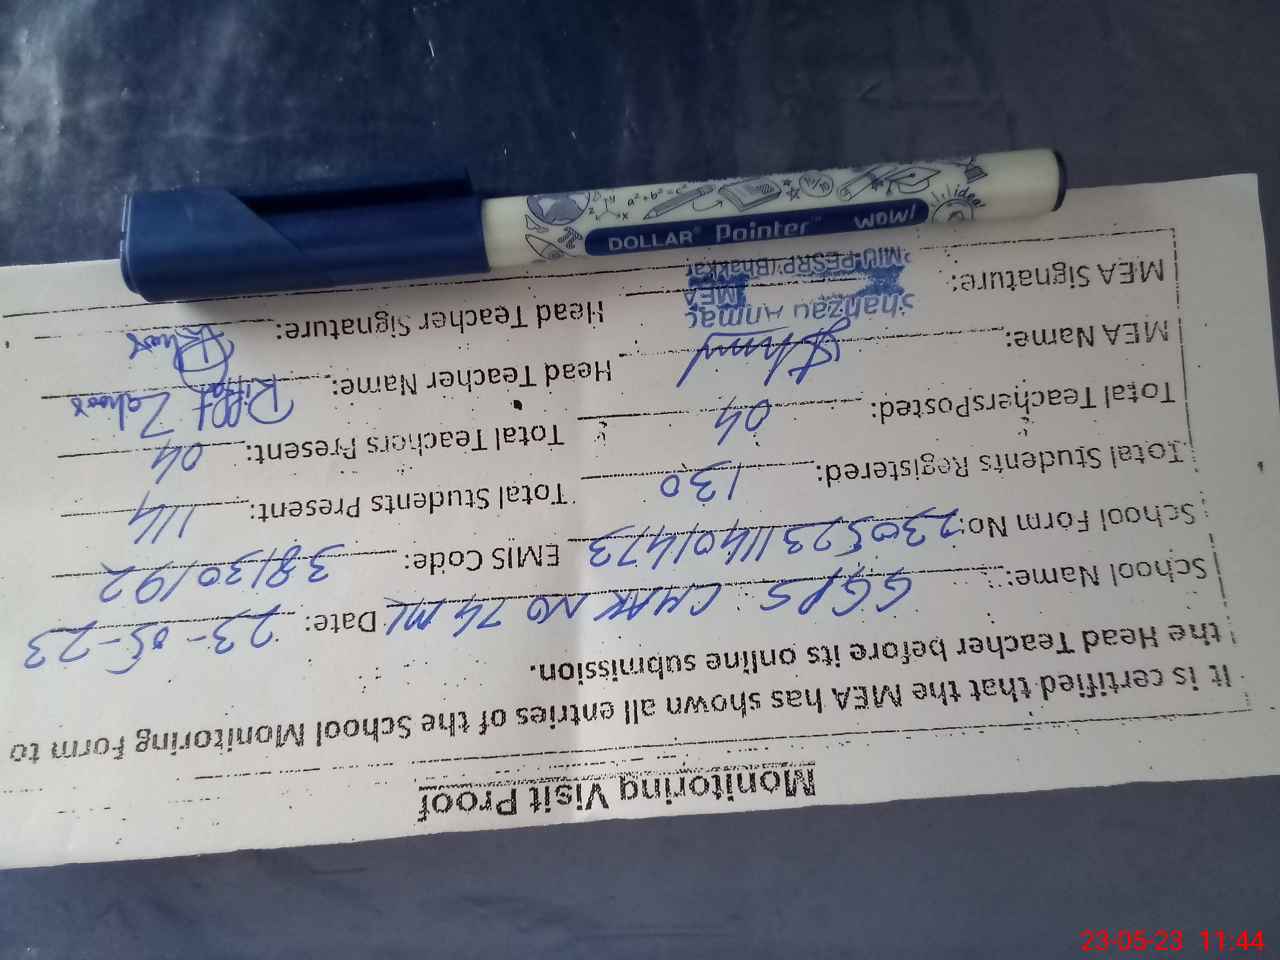 Monitoring Visit Proof
It is certified that the MEA has shown all entries of the School Monitoring Form to
the Head Teacher before its online submission.
School Name: GGPS CHAK NO 74 ML Date: 23-05-23
School Form No: 23052311401473 EMIS Code: 38130192
Total Students Registered: 130 Total Students Present: 114
Total TeachersPosted: 04 Total Teachers Present: 04
MEA Name: Head Teacher Name: Riffat Zahoor
MEA Signature: Head Teacher Signature:
MEA
MIU-PESRP (Bhakkar
DOLLAR® Pointer™ WOW!
a²+b²=c²
x y z
idea
23-05-23 11:44